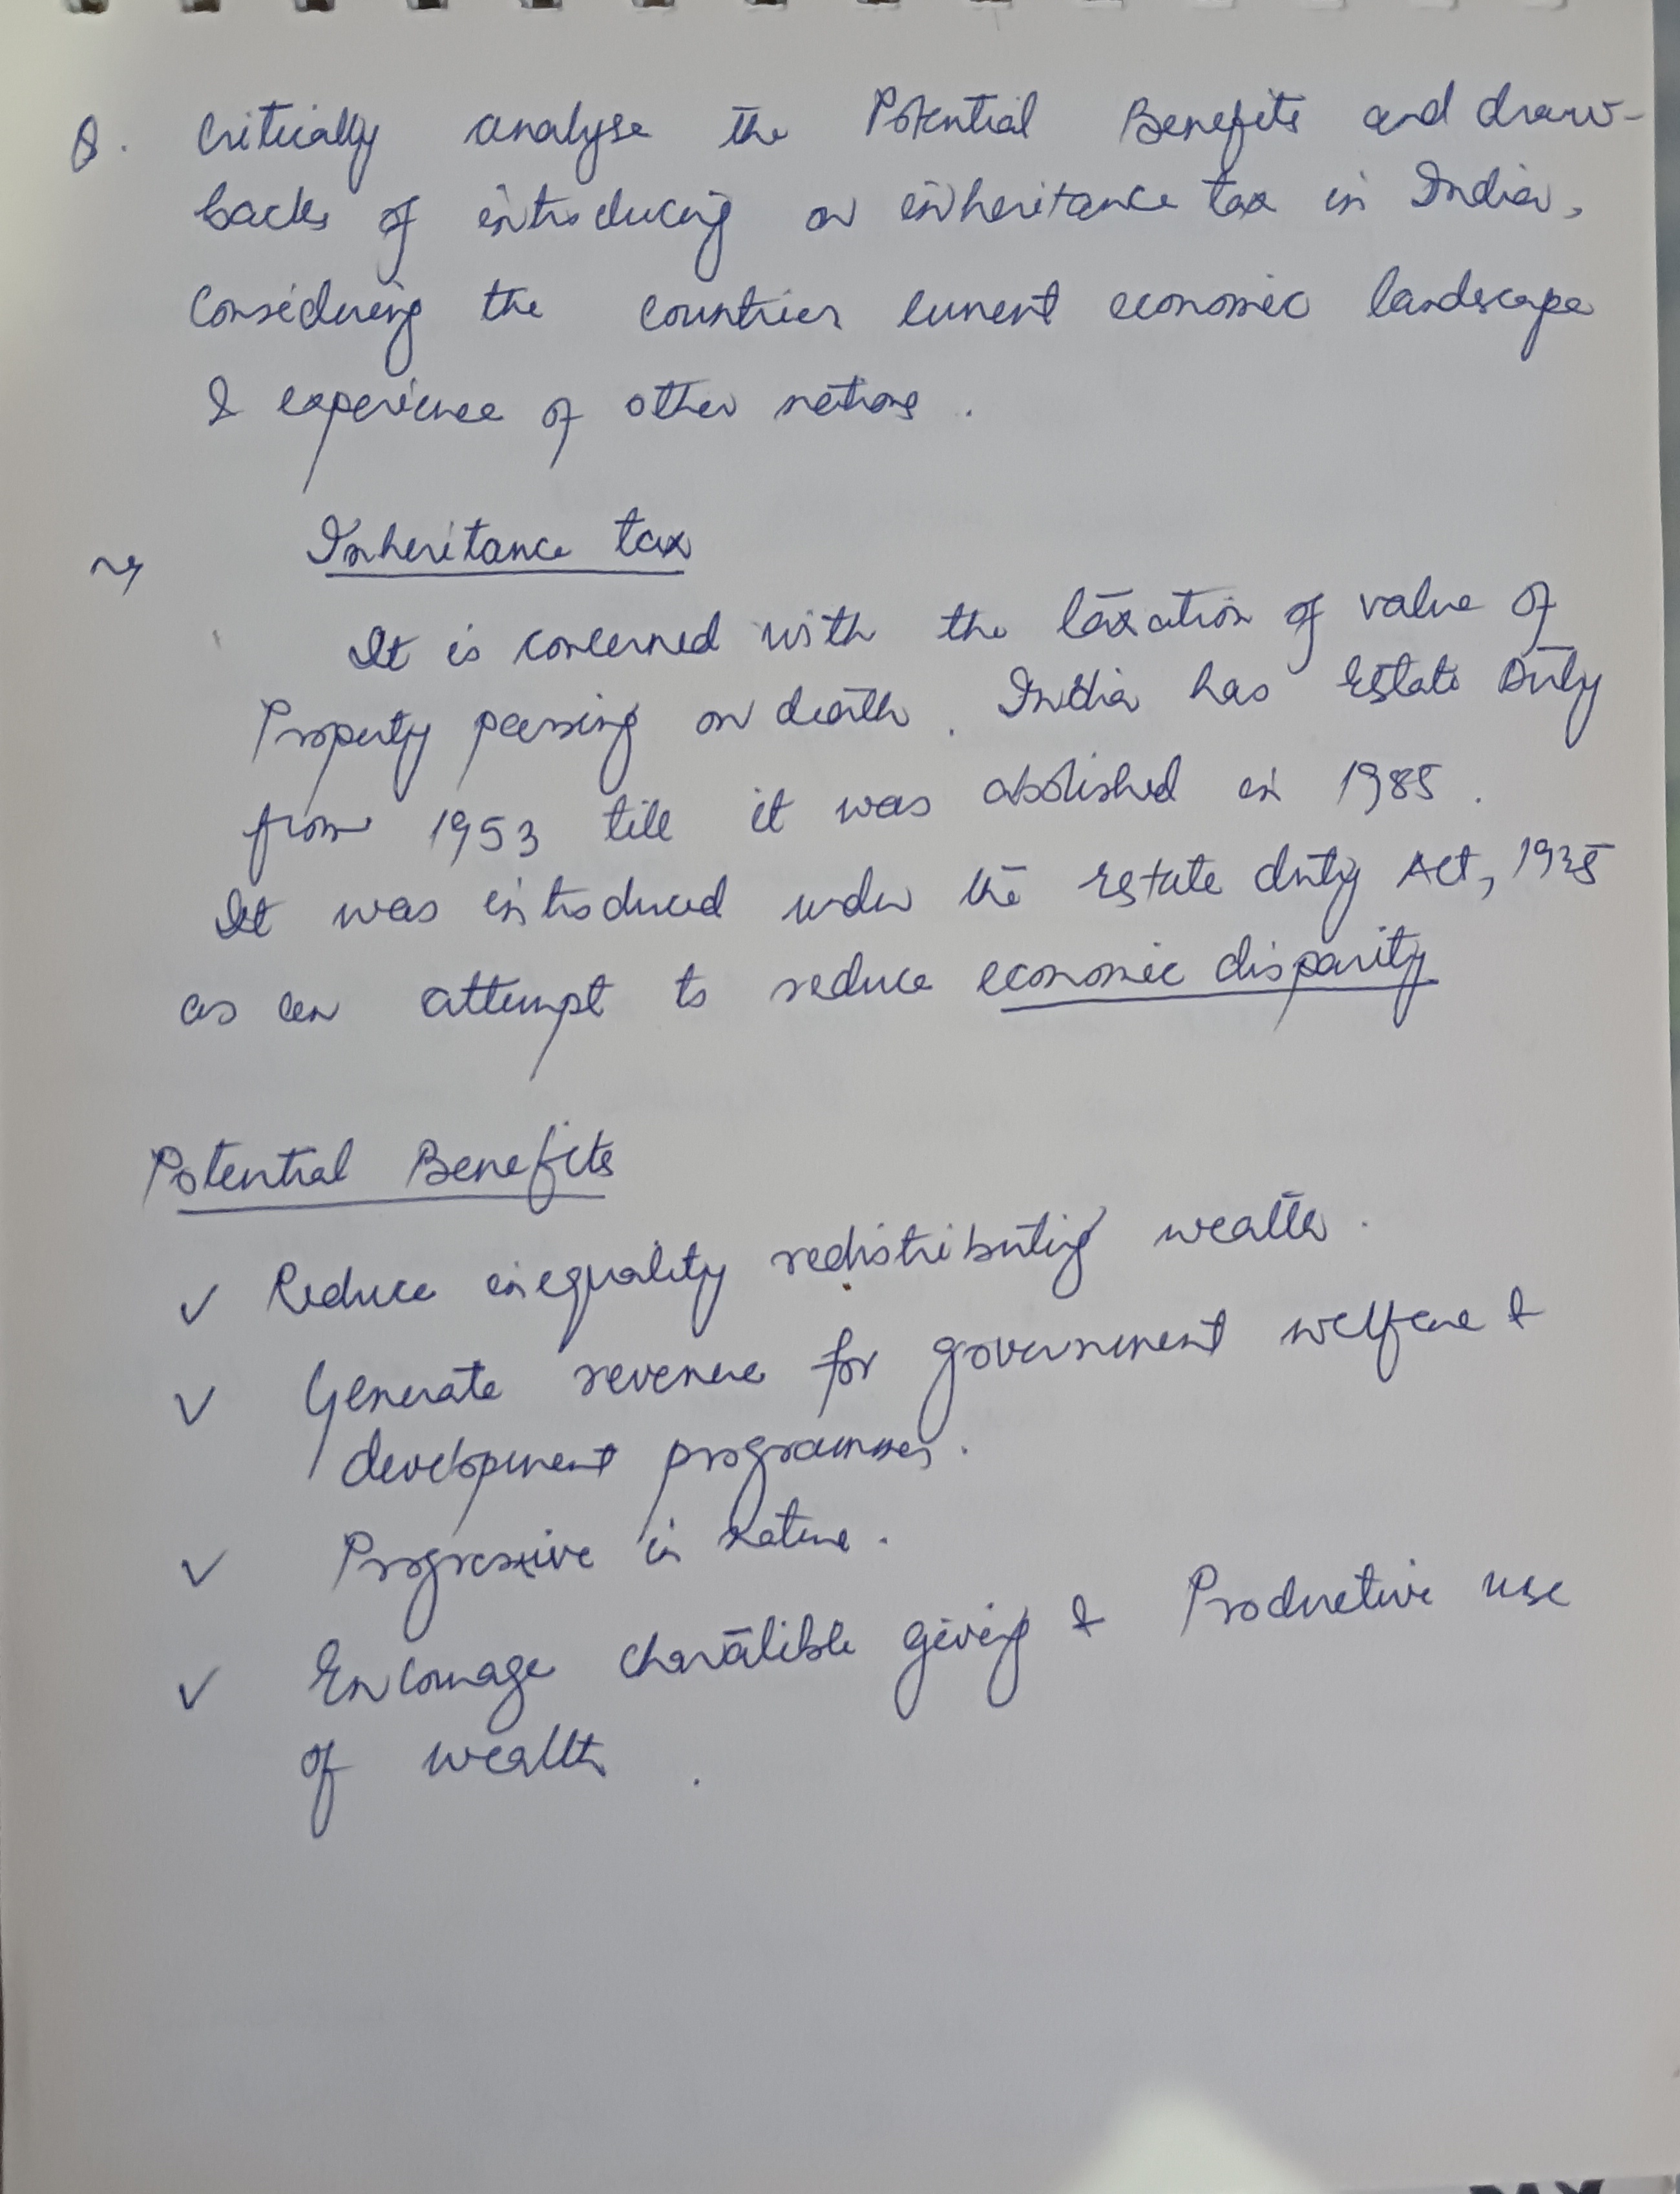 Q. Critically analyse the Potential Benefits and draw-
backs of introducing an inheritance tax in India,
Considering the countries current economic landscape
& experience of other nations.
Inheritance tax
It is concerned with the taxation of value of
Property passing on death. India has Estate Duty
from 1953 till it was abolished in 1985.
It was introduced under the Estate duty Act, 1935
as an attempt to reduce economic disparity
Potential Benefits
✓ Reduce inequality redistributing wealth.
✓ Generate revenue for government welfare &
development programmes.
✓ Progressive in nature.
✓ Encourage charatible giving & Productive use
of wealth.